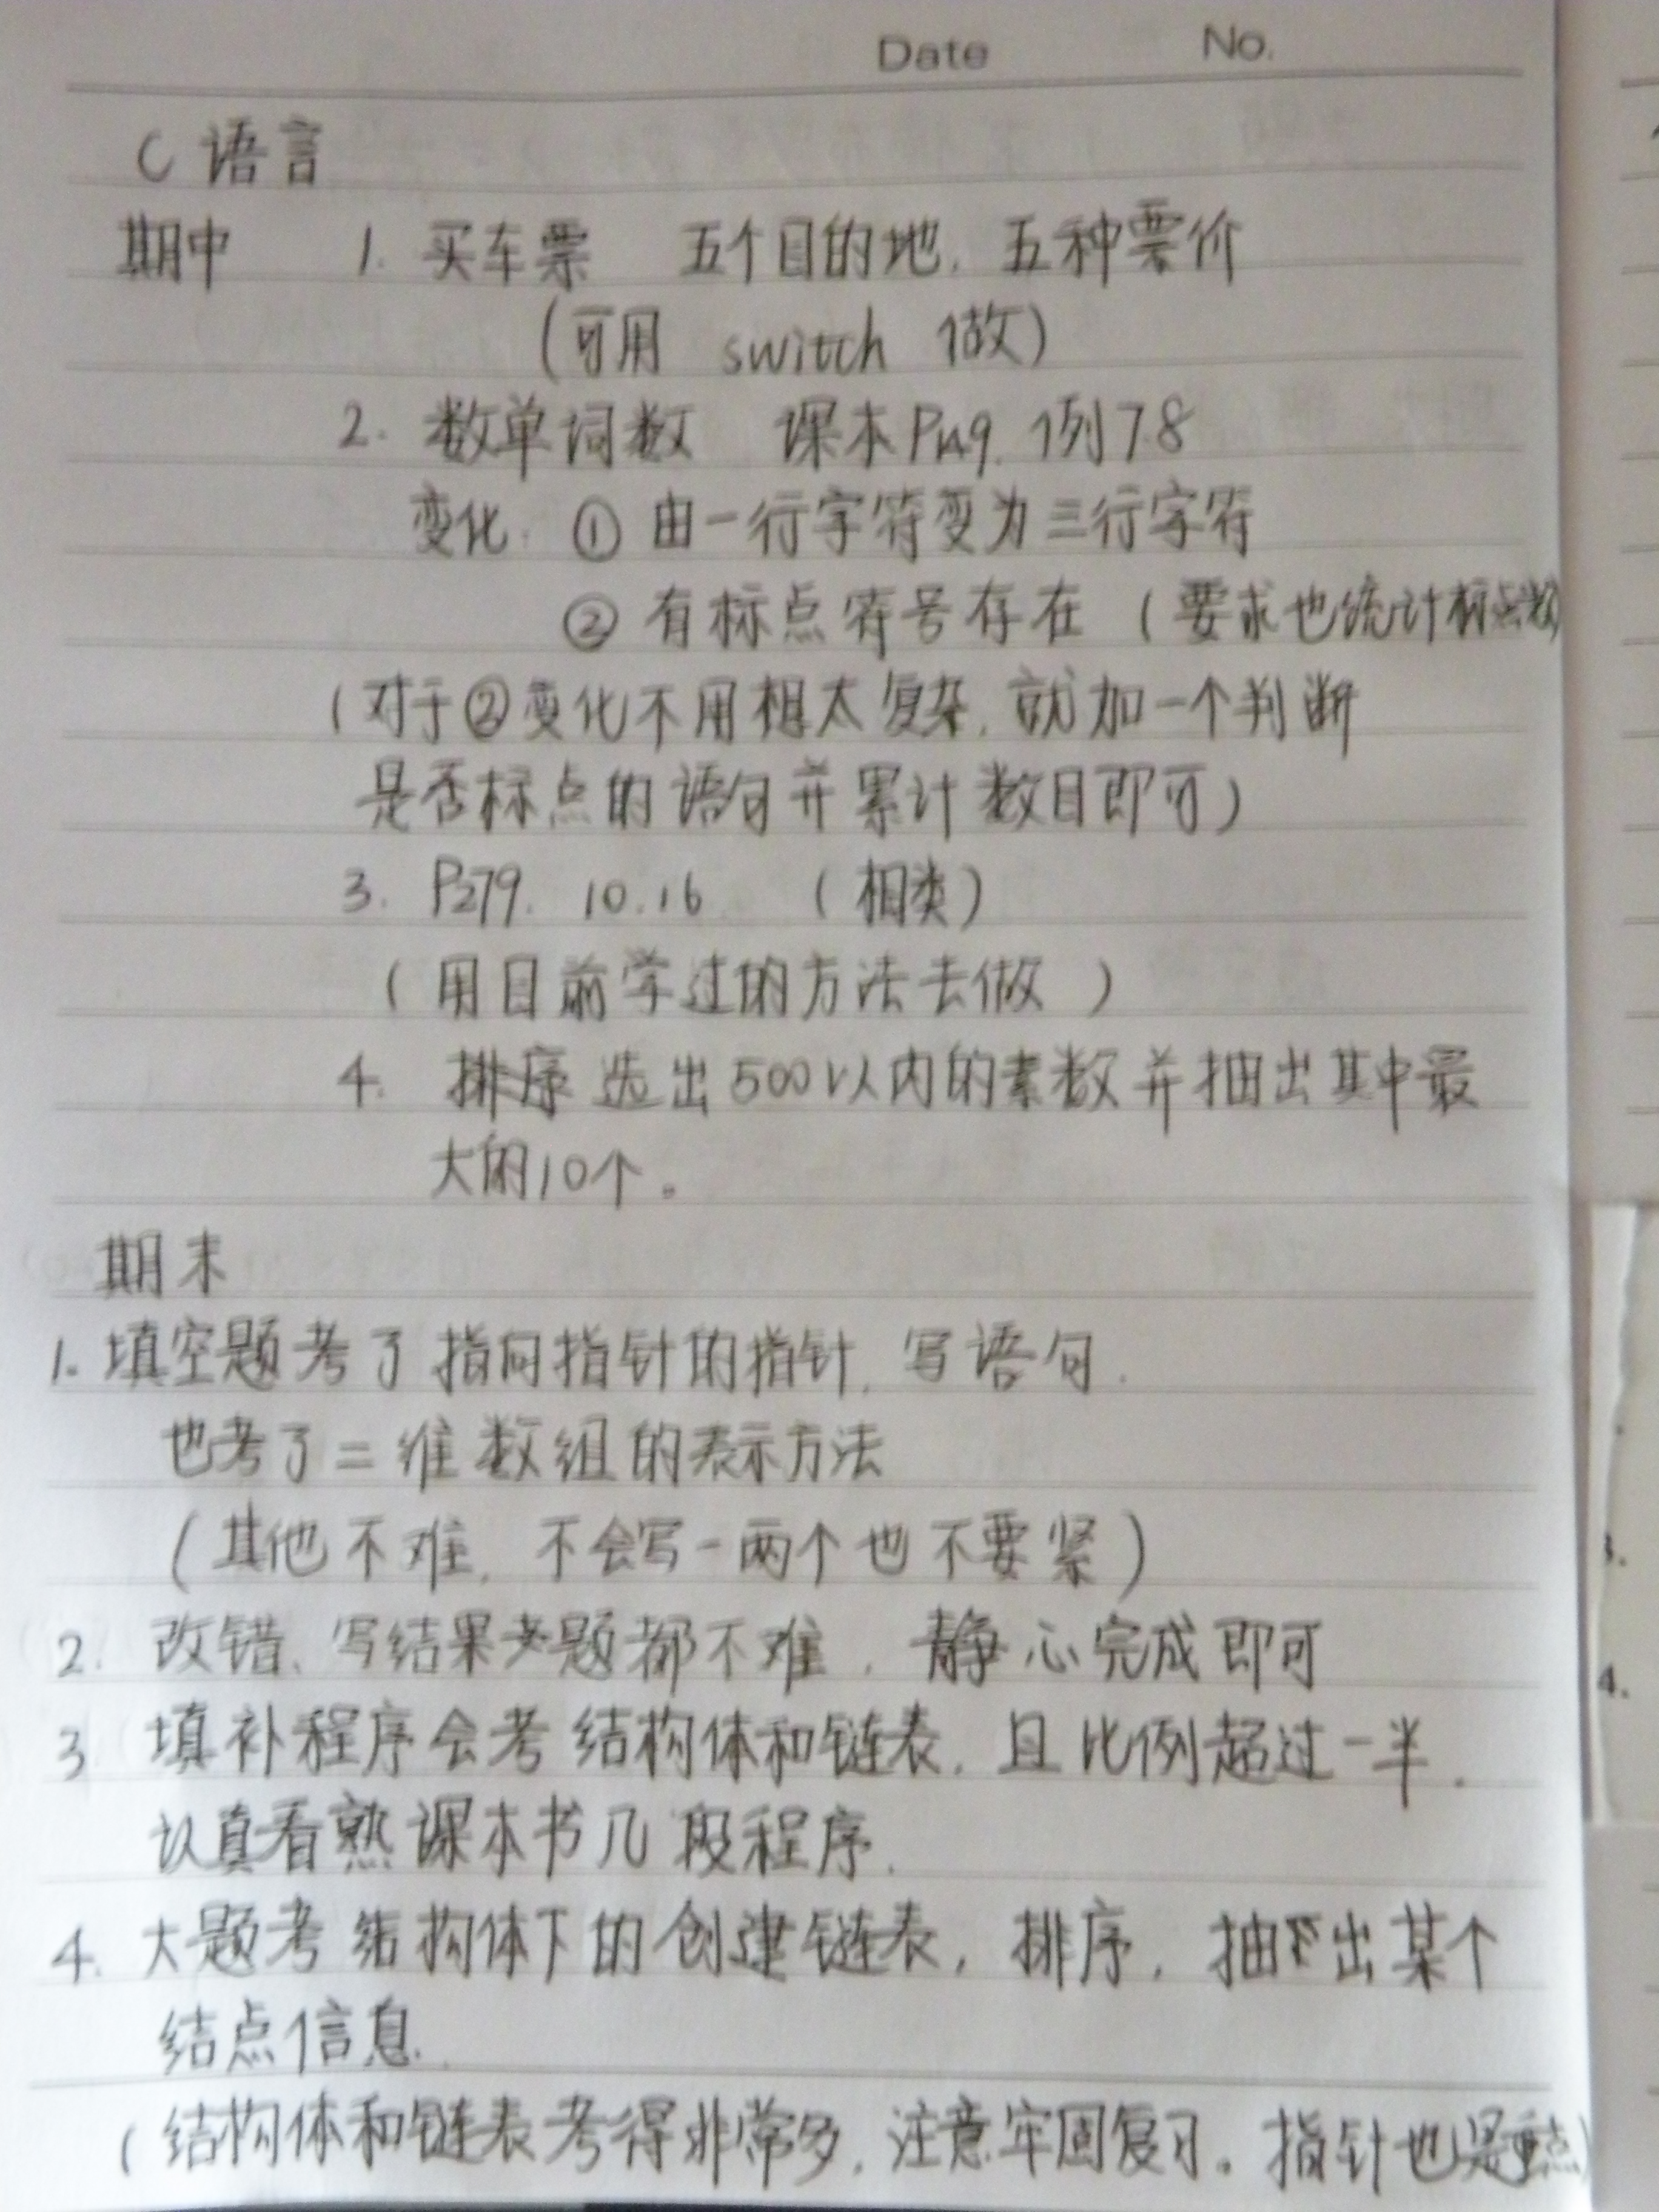 Date No.
C 语言
期中 1. 买车票 五个目的地. 五种票价
(可用 switch 做)
2. 数单词数 课本P149. 例7.8
变化: ① 由一行字符变为三行字符
② 有标点符号存在 (要求也统计标点数)
(对于②变化不用想太复杂. 就加一个判断
是否标点的语句并累计数目即可)
3. P279. 10.16 (相类)
(用目前学过的方法去做 )
4. 排序 选出500以内的素数并抽出其中最
大的10个。
期末
1. 填空题考了指向指针的指针, 写语句.
也考了二维数组的表示方法
(其他不难, 不会写一两个也不要紧)
2. 改错、写结果 题都不难, 静心完成即可
3. 填补程序会考结构体和链表, 且比例超过一半.
认真看熟课本书几段程序.
4. 大题考结构体下的创建链表, 排序, 抽出某个
结点信息.
(结构体和链表考得非常多, 注意牢固复习。指针也是重点)
3.
4.